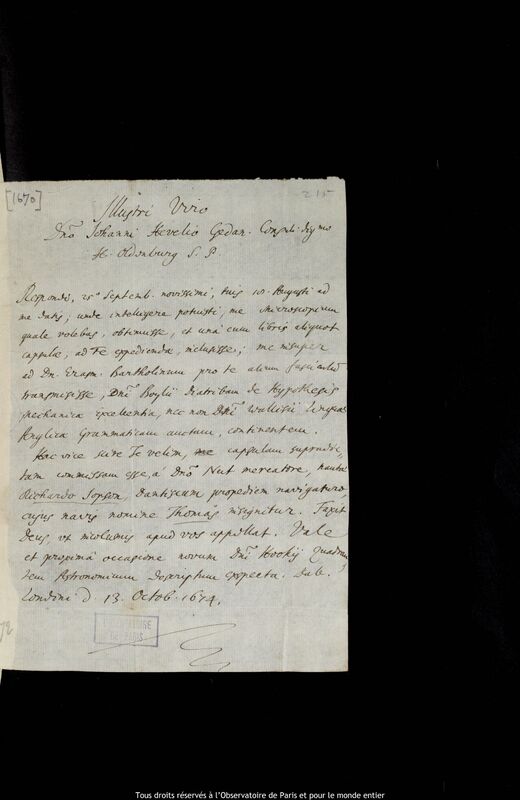 [1670]
215
Illustri Viro
Dnō Johanni Hevelio Gedan. Consuli digmo
H. Oldenburg S. P
Respondi, 25° Septemb. novissimi, tuis 10. Augusti ad
me datis; unde intelligere potuisti, me Microscopium
quale volebas, obtinuisse, et unà cum libris aliquot
capsulæ, ad te expediendæ, inclusisse; me insuper
ad Dn. Erasm. Bartholinum pro te alium fasciculum
transmisisse, Dni Boylii diatribam de Hypothesis
mechanicæ excellentia, nec non Dni Wallisii Linguæ
Anglicæ Grammaticam auctam, continentem.
Hac vice scire Te velim, capsulam supradic-
tam commissam esse, à Dnō Nut mercatore, nautæ
Richardo Jopson, Dantiscum propediem navigaturo,
cujus navis nomine Thomas insignitur. Faxit
Deus, ut incolumis apud vos appellat. Vale
et proxima occasione novum Dni Hookij Quadran-
tem Astronomicum descriptum expecta. Dab.
Londini d. 13. Octob. 1674.
OBSERVATOIRE
DE PARIS
Tous droits réservés à l'Observatoire de Paris et pour le monde entier